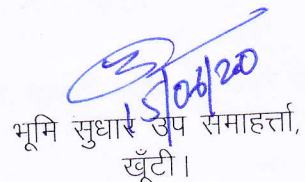 15/06/2020
भूमि सुधार उप समाहर्त्ता,
खूँटी।